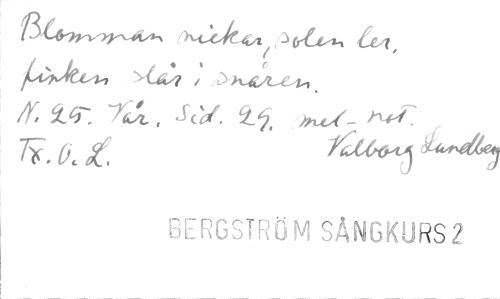 Blomman nickar, solen ler,
finken slår i snåren.
N. 25. Vår. Sid. 29. mel-not.
Tx. O. L. Valborg Lundberg
BERGSTRÖM SÅNGKURS 2